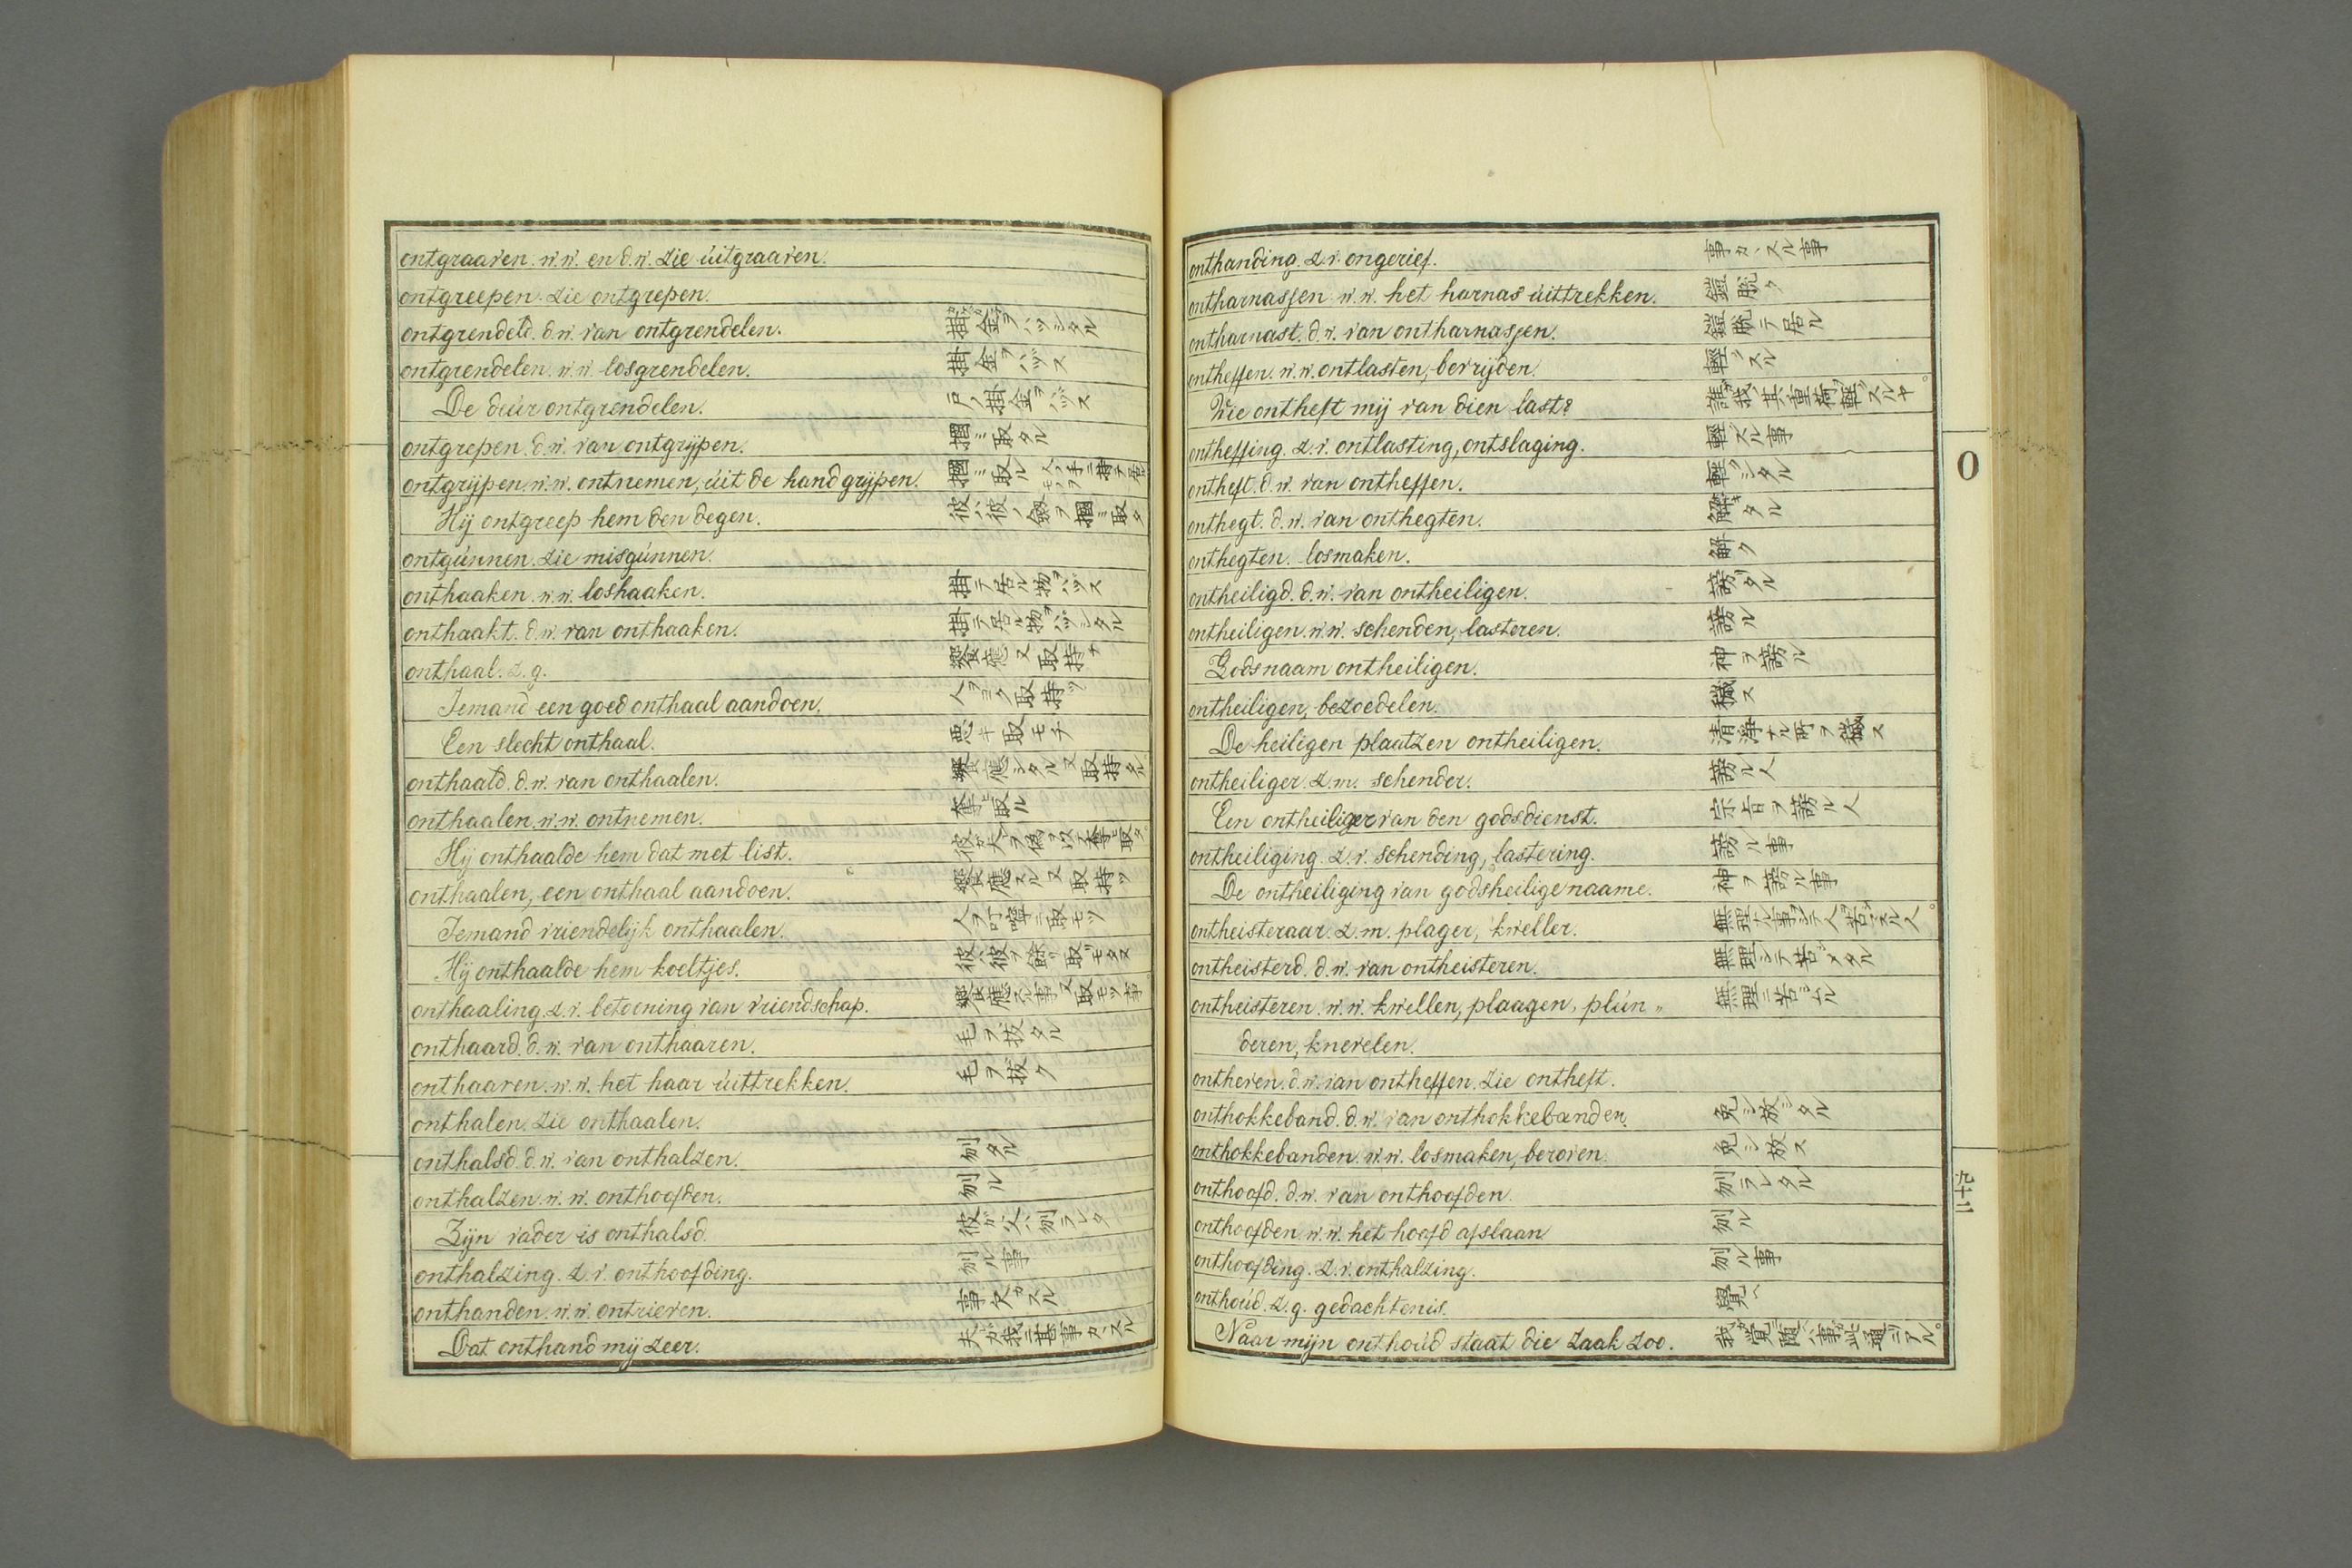 ontgraaven. w.w. en d.w. zie úitgraaven.
ontgreepen. zie ontgrepen.
ontgrendeld. d.w. van ontgrendelen. 掛金ヲハヅシタル
ontgrendelen. w.w. losgrendelen. 掛金ヲハヅス
De deúr ontgrendelen. 戸ノ掛金ヲハヅス
ontgrepen. d.w. van ontgrijpen. 摑ミ取タル
ontgrijpen. w.w. ontnemen, úit de hand grijpen. 摑ミ取ル
Hij ontgreep hem den degen. 彼ハ彼ノ劔ヲ摑ミ取タ
ontgúnnen. zie misgúnnen.
onthaaken. w.w. loshaaken. 掛テ居ル物ヲハヅス
onthaakt. d.w. van onthaaken. 掛テ居ル物ヲハヅシタル
onthaal. z.g.饗應又取持チ
Iemand een goed onthaal aandoen. 人ヲヨク取持ツ
Een slecht onthaal. 悪キ取モチ
onthaald. d.w. van onthaalen. 饗應シタル又取持タル
onthaalen. w.w. ontnemen. 奪ヒ取ル
Hij onthaalde hem dat met list.
onthaalen, een onthaal aandoen. 饗應スル又取持ツ
Iemand vriendelijk onthaalen. 人ヲ叮嚀ニ取モツ
Hij onthaalde hem koeltjes.
onthaaling. z.v. betooning van vriendschap. 饗應スル事又取モツ事
onthaard. d.w. van onthaaren. 毛ヲ抜タル
onthaaren. w.w. het haar úittrekken. 毛ヲ抜ク
onthalen. zie onthaalen.
onthalsd. d.w. van onthalzen. 刎タル
onthalzen. w.w. onthoofden. 刎ル
Zijn vader is onthalsd. 彼ガ父ハ刎ラレタ
onthalzing. z.v. onthoofding. 刎ル事
onthanden. w.w. ontrieven. 事欠カスル
Dat onthand mij zeer.
onthanding. z.v. ongerief.
ontharnassen. w.w. het harnas úittrekken. 鎧脱ク
ontharnast. d.w. van ontharnassen. 鎧脱テ居ル
ontheffen. w.w. ontlasten, bevrijden. 輕クスル
Wie ontheft mij van dien last?
ontheffing. z.v. ontlasting, ontslaging. 輕クスル事
ontheft. d.w. van ontheffen. 輕クシタル
onthegt. d.w. van onthegten. 解キタル
onthegten. losmaken. 解ク
ontheiligd. d.w. van ontheiligen. 謗リタル
ontheiligen. w.w. schenden, lasteren. 謗ル
Godsnaam ontheiligen. 神ヲ謗ル
ontheiligen, bezoedelen. 穢ス
De heiligen plaatzen ontheiligen. 清浄ナル所ヲ穢ス
ontheiliger. z.m. schender. 謗ル人
Een ontheiliger van den godsdienst. 宗旨ヲ謗ル人
ontheiliging. z.v. schending, lastering. 謗ル事
De ontheiliging van godsheilige naame. 神ヲ謗ル事
ontheisteraar. z.m. plager, kweller.
ontheisterd. d.w. van ontheisteren.
ontheisteren. w.w. kwellen, plaagen, plún„ 無理ニ苦シムル
deren, knevelen.
ontheven. d.w. van ontheffen. zie ontheft.
onthokkeband. d.w. van onthokkebanden. 免シ放シタル
onthokkebanden. w.w. losmaken, beroven. 免シ放ス
onthoofd. d.w. van onthoofden. 刎ラレタル
onthoofden. w.w. het hoofd afslaan 刎ル
onthoofding. z.v. onthalzing. 刎ル事
onthoúd. z.g. gedachtenis. 覺ヘ
Naar mijn onthoúd staat die zaak zoo.
O